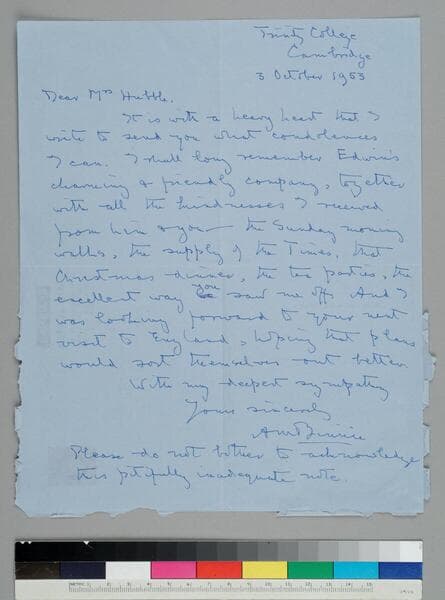 Trinity College
Cambridge
3 October 1953
Dear Mrs Hubble.
It is with a heavy heart that I
write to send you what condolences
I can. I shall long remember Edwin's
charming & friendly company, together
with all the kindnesses I received
from him & you – the Sunday morning
walks, the supply of the Times, that
Christmas dinner, the tea parties, the
excellent way you saw me off. And I
was looking forward to your next
visit to England, hoping that plans
would sort themselves out better.
With my deepest sympathy
Yours sincerely
Please do not bother to acknowledge
this pitifully inadequate note.